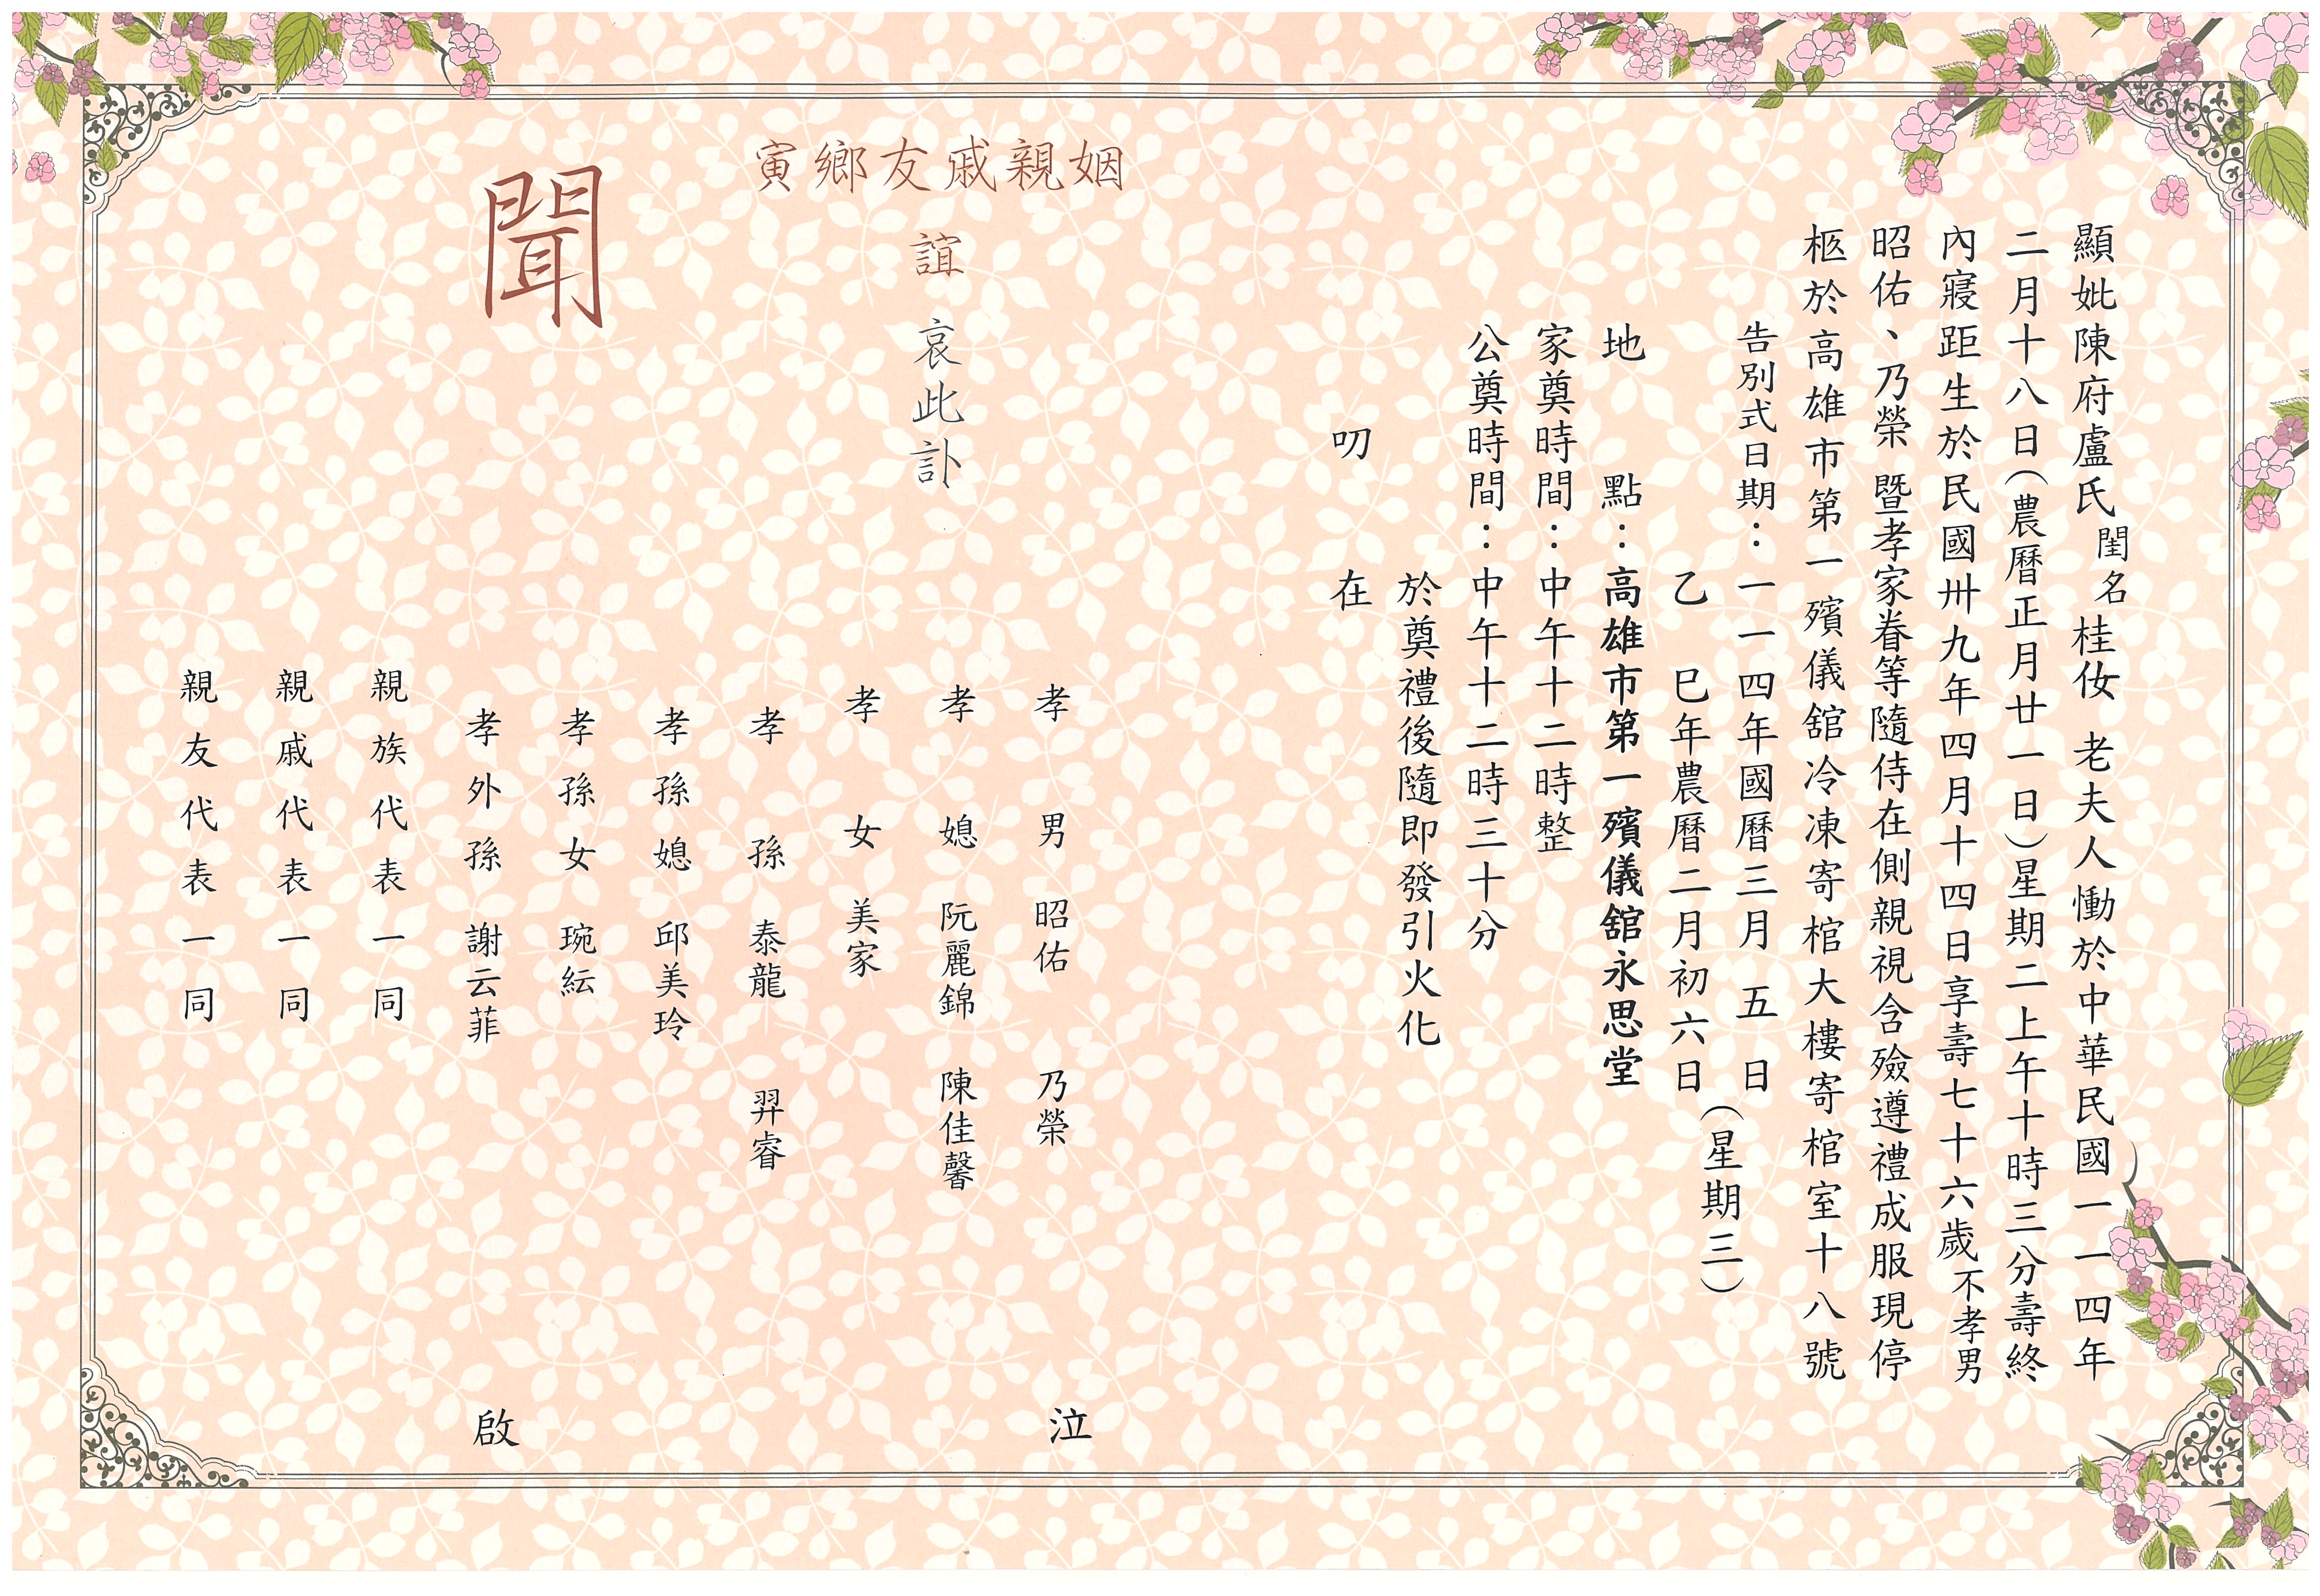 顯妣陳府盧氏閨名桂伩 老夫人慟於中華民國一一四年
二月十八日(農曆正月廿一日)星期二上午十時三分壽終
內寢距生於民國卅九年四月十四日享壽七十六歲不孝男
昭佑、乃榮 暨孝家眷等隨侍在側親視含殮遵禮成服現停
柩於高雄市第一殯儀舘冷凍寄棺大樓寄棺室十八號
告別式日期：一一四年國曆三月 五 日
乙 巳年農曆二月初六日
(星期三)
地 點：高雄市第一殯儀舘永思堂
家奠時間：中午十二時整
公奠時間：中午十二時三十分
於奠禮後隨即發引火化
叨 在
姻親戚友鄉寅
誼
哀此訃
聞
孝 男 昭佑 乃榮
孝 媳 阮麗錦 陳佳馨
孝 女 美家
孝 孫 泰龍 羿睿
孝孫媳 邱美玲
孝孫女 琬紜
孝外孫 謝云菲
親族代表一同
親戚代表一同
親友代表一同
泣
啟